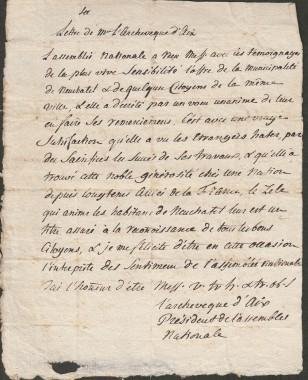 Lettre de Mr L'archeveque d'Aix
L'assemblée Nationale a reçu Mess. avec les témoignages
de la plus vive Sensibilité l'offre de la municipalité
de Neuchatel & de quelques Citoyens de la même
ville, & elle a décrété par un voeu unanime de leur
en faire ses remerciemens. C'est avec une vraye
Satisfaction qu'elle a vu les étrangers hater par
des Sacrifices les Succès de Ses travaux, & qu'elle a
trouvé cette noble générosité chés une Nation
depuis longtems Alliée de la France, le Zele
qui anime les habitans de Neuchatel leur est un
titre assuré à la reconoissance de tous les bons
Citoyens, & je me félicite d'être en cette occasion
l'interprete des Sentimens de l'assemblée nationale
J'ai l'honneur d'être Mess. v. tr. h. & tr. ob. s.
L'archeveque d'Aix
Président de l'assemblée
Nationale